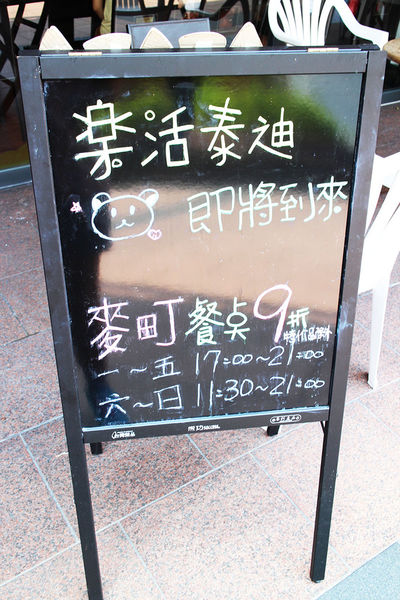 楽活泰迪
即將到來
麥町餐桌9折
特價品例外
一~五 17:00~21:00
六~日 11:30~21:00